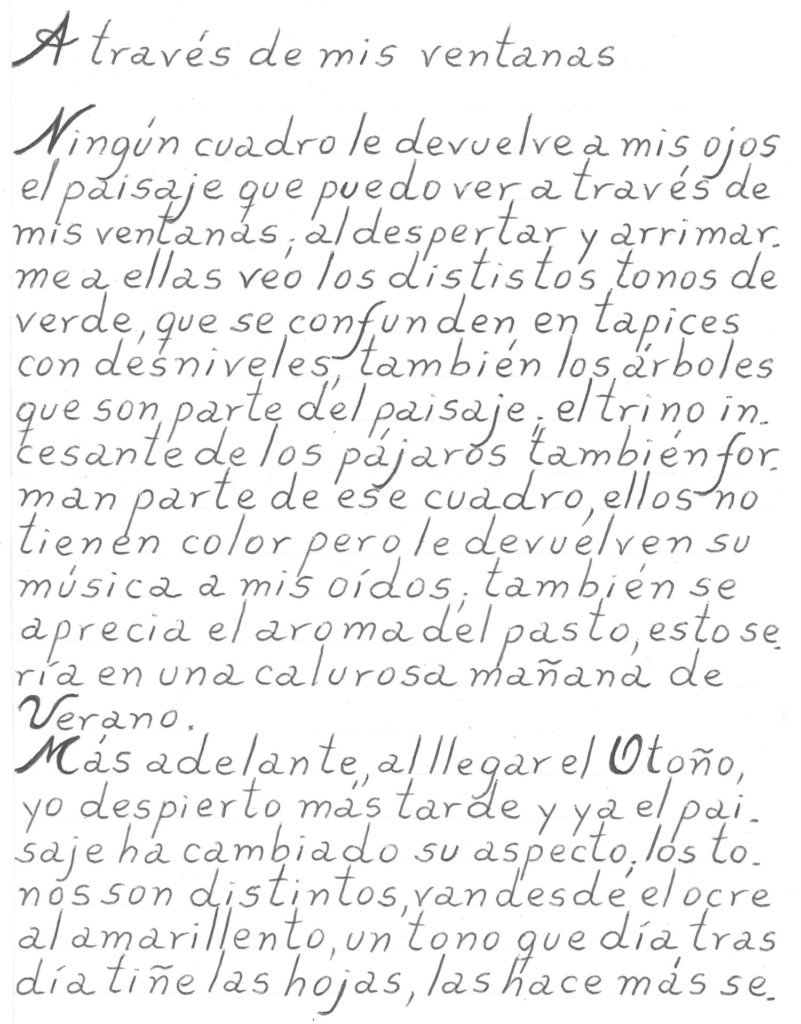 A través de mis ventanas
Ningún cuadro le devuelve a mis ojos
el paisaje que puedo ver a través de
mis ventanas; al despertar y arrimar-
me a ellas veo los dististos tonos de
verde, que se confunden en tapices
con desniveles, también los árboles
que son parte del paisaje; el trino in-
cesante de los pájaros también for-
man parte de ese cuadro, ellos no
tienen color pero le devuelven su
música a mis oídos; también se
aprecia el aroma del pasto, esto se-
ría en una calurosa mañana de
Verano.
Más adelante, al llegar el Otoño,
yo despierto más tarde y ya el pai-
saje ha cambiado su aspecto; los to-
nos son distintos, van desde el ocre
al amarillento, un tono que día tras
día tiñe las hojas, las hace más se-